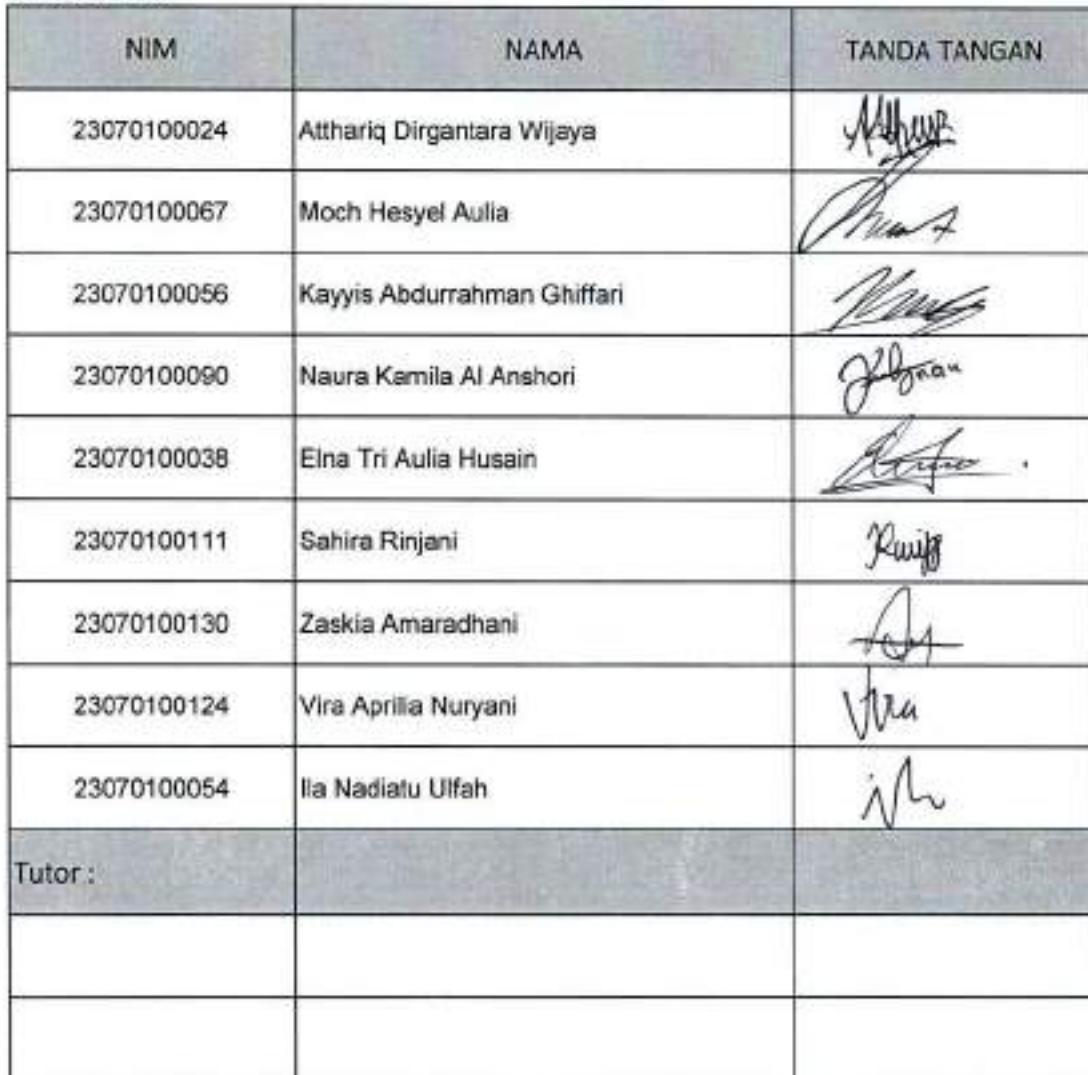 NIM NAMA TANDA TANGAN
23070100024 Atthariq Dirgantara Wijaya
23070100067 Moch Hesyel Aulia
23070100056 Kayyis Abdurrahman Ghiffari
23070100090 Naura Kamila Al Anshori
23070100038 Elna Tri Aulia Husain
23070100111 Sahira Rinjani
23070100130 Zaskia Amaradhani
23070100124 Vira Aprilia Nuryani Vira
23070100054 Ila Nadiatu Ulfah
Tutor :